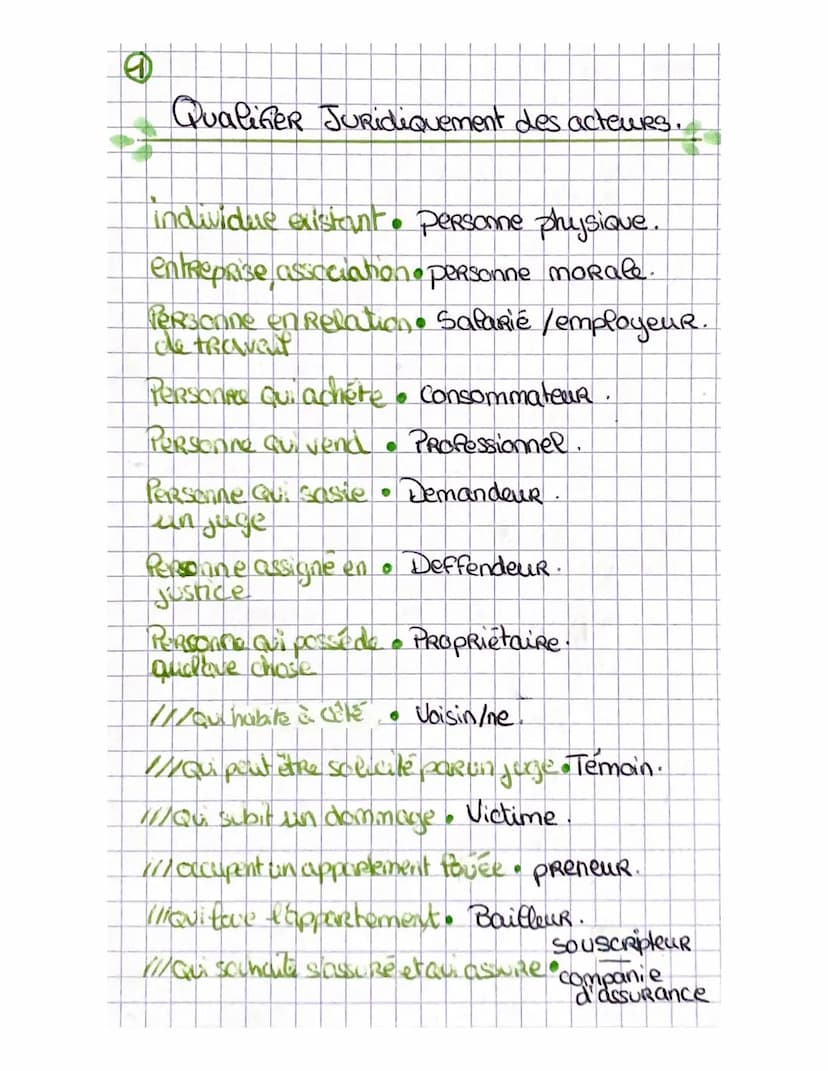 1
Qualifier Juridiquement des acteurs.
individue existant • personne physique.
entreprise, association • personne morale.
Personne en Relation • Salarié / employeur.
de travail
Personne qui achéte • Consommateur.
Personne qui vend • Professionnel.
Personne qui sasie • Demandeur.
un juge
Personne assigné en • Deffendeur.
justice
Personne qui posséde • Propriétaire.
quelque chose
/// qui habite à côté • Voisin/ne.
/// qui peut être solicité par un juge • Témoin.
/// qui subit un dommage • Victime.
/// occupent un appartement louée • preneur.
/// qui loue l'appartement • Bailleur.
souscripteur
/// qui souhaite s'assuré et qui assure • companie
d'assurance